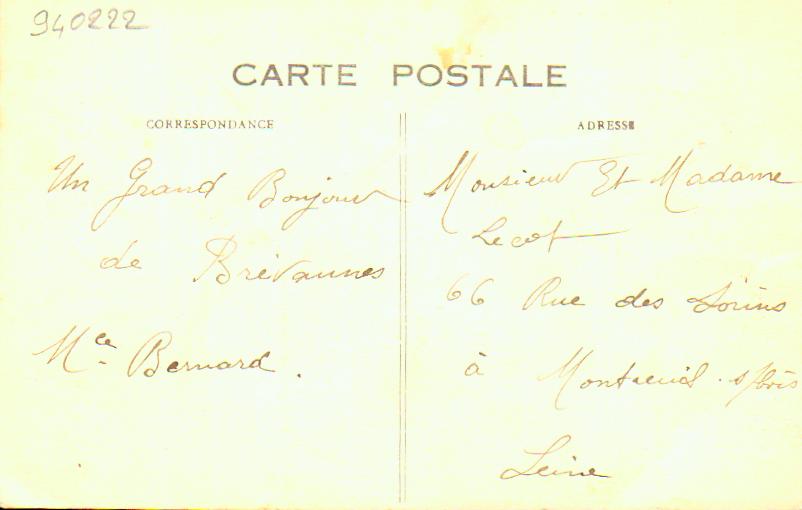 940222
CARTE POSTALE
CORRESPONDANCE
Un Grand Bonjour
de Brévannes
Mce Bernard.
ADRESSE
Monsieur Et Madame
Lecot
66 Rue des
à Montreuil s/bois
Seine